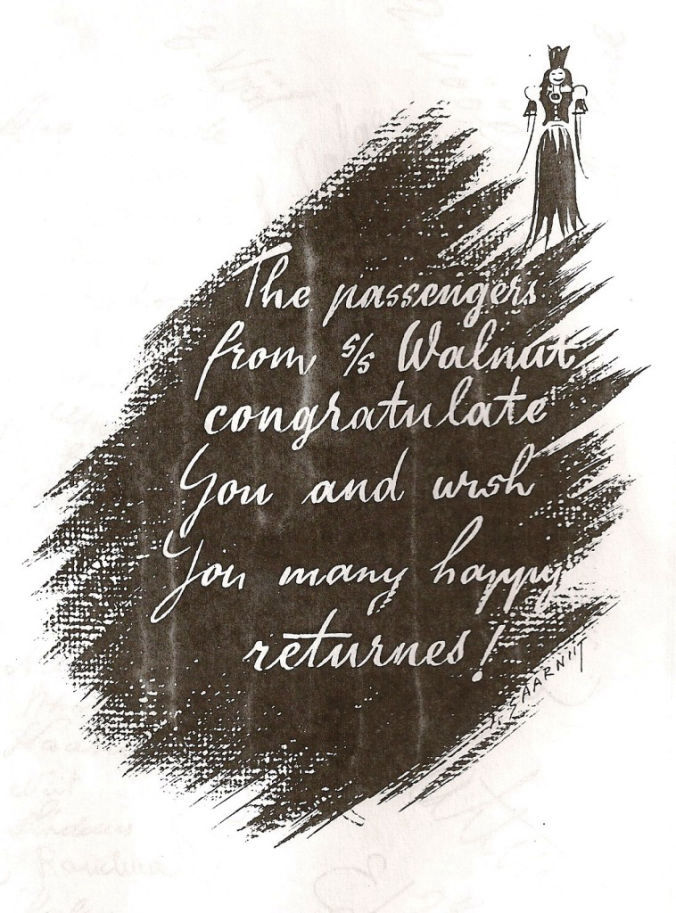 The passengers
from s/s Walnut,
congratulate
You and wish
You many happy
returnes!
J. SAARNIIT